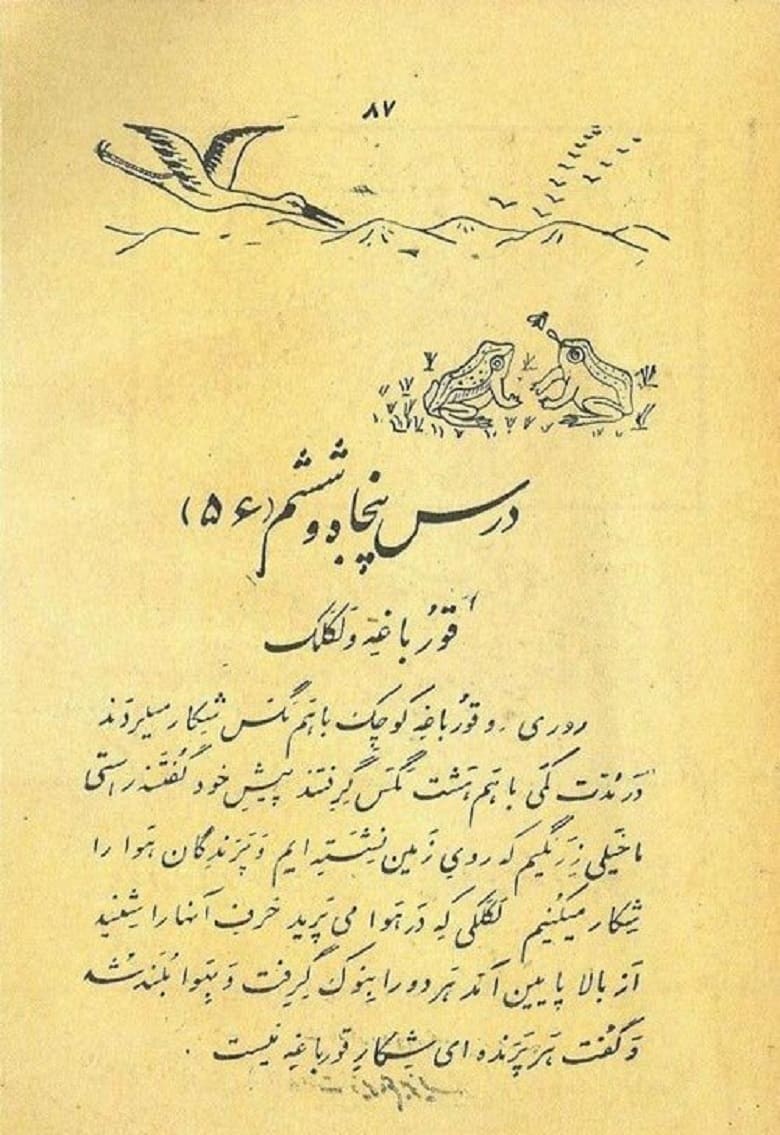 ۸۷
درس پنجاه و ششم (۵۶)
قورُباغِه وَ لَکلَک
روزی دو قورُباغِهِ کوچِک باهَم مَگَس شِکار میکَردَند
دَر مُدّت کَمی با هَم هَشت مَگَس گِرِفتَند پیشِ خود گُفتَند راستی
ما خَیلی زِرَنگیم که رویِ زَمین نِشَستِه ایم وَ پَرَندِگان هَوا را
شِکار میکُنیم لَکلَکی کِه دَر هَوا می پَرید حَرفِ آنها را شِنید
اَز بالا پایین آمَد هَر دو را بِنوک گِرِفت وَ بِهَوا بُلَند شُد
وَ گُفت هَر پَرَنده ای شِکارِ قورباغِه نیست .